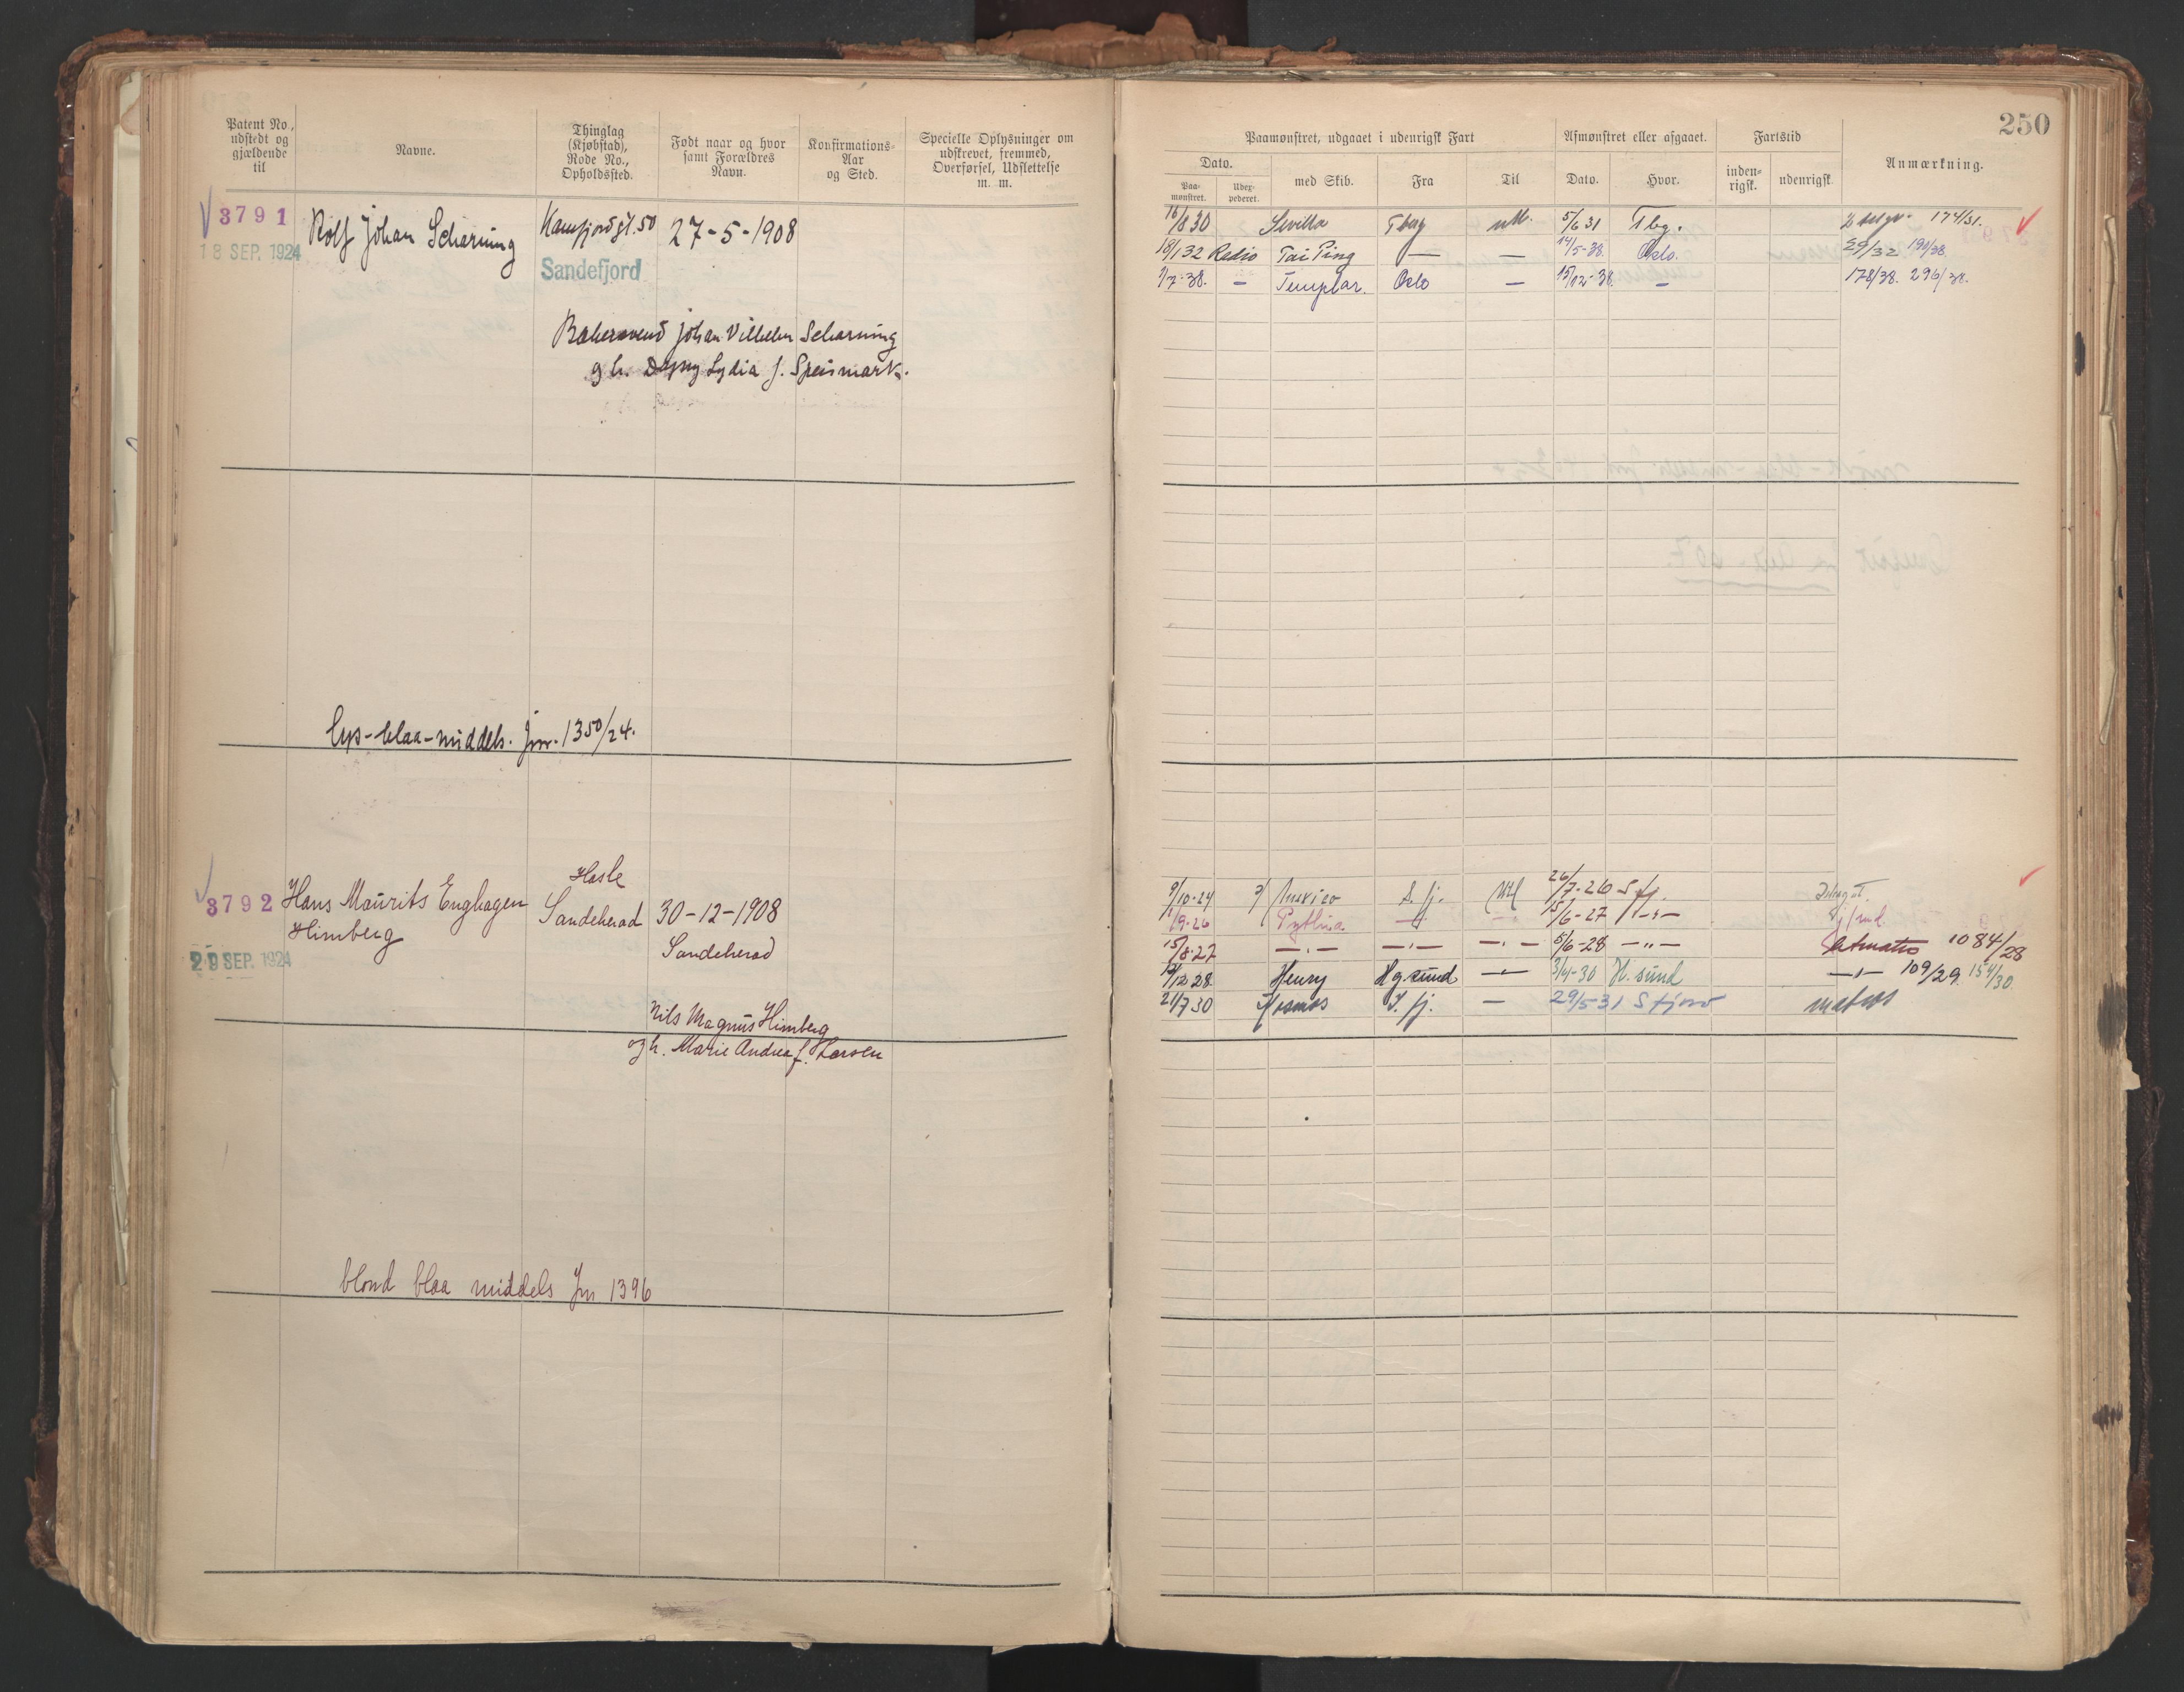 250
Patent No., udstedt og gjældende til
Navne.
Thinglag (Kjøbstad), Rode No., Opholdssted.
Født naar og hvor samt Forældres Navn.
Konfirmations-Aar og Sted.
Specielle Oplysninger om udskrevet, fremmed, Overførsel, Udslettelse m. m.
Paamønstret, udgaaet i udenrigsk Fart
Afmønstret eller afgaaet.
Fartstid
Anmærkning.
Dato.
Paa-mønstret.
Udex-pederet.
med Skib.
Fra
Til
Dato.
Hvor.
inden-rigsk.
udenrigsk.
3791
18 SEP. 1924
Rolf Johan Scharning
Kamfjordgt. 50
Sandefjord
27-5-1908
Johan Vilhelm Scharning
g h. Dagny Lydia f. Speismark.
lys-blaa-middels. Jnr. 1350/24.
16/8 30 Sevilla Tbug ubk. 5/6 31 Tbg. 174/31.
18/1 32 Radio Tai Ping — — 14/5-38. Oslo. 29/32 190/38
1/7-38. — Templar. Oslo — 15/12-38. — 178/38. 296/38.
3792
29 SEP. 1924
Hans Maurits Enghagen
Himberg
Hasle
Sandeherad
30-12-1908
Sandeherad
Nils Magnus Himberg
og h. Marie Andrea f. Larsen
blond blaa middels Jnr 1396
9/10-24 S. fj. 26/7-26 S fj.
1/9-26 Pythia — — 15/6-27 —"—
15/8-27 —"— —"— —"— 5/6-28 —"— 1084/28
12/12 28 Henry Hg.sund — 3/4-30 H. sund —"— 109/29. 154/30
21/7 30 Kosmos S. fj. — 29/5-31 S fjord matros